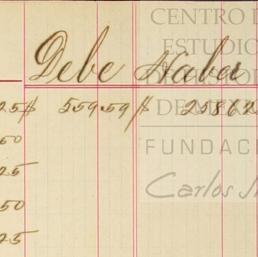 CENTRO
ESTUDIO
Debe Haber
25 $ 559.59 $ 25862
50
FUNDAC
25
Carlos
50
25